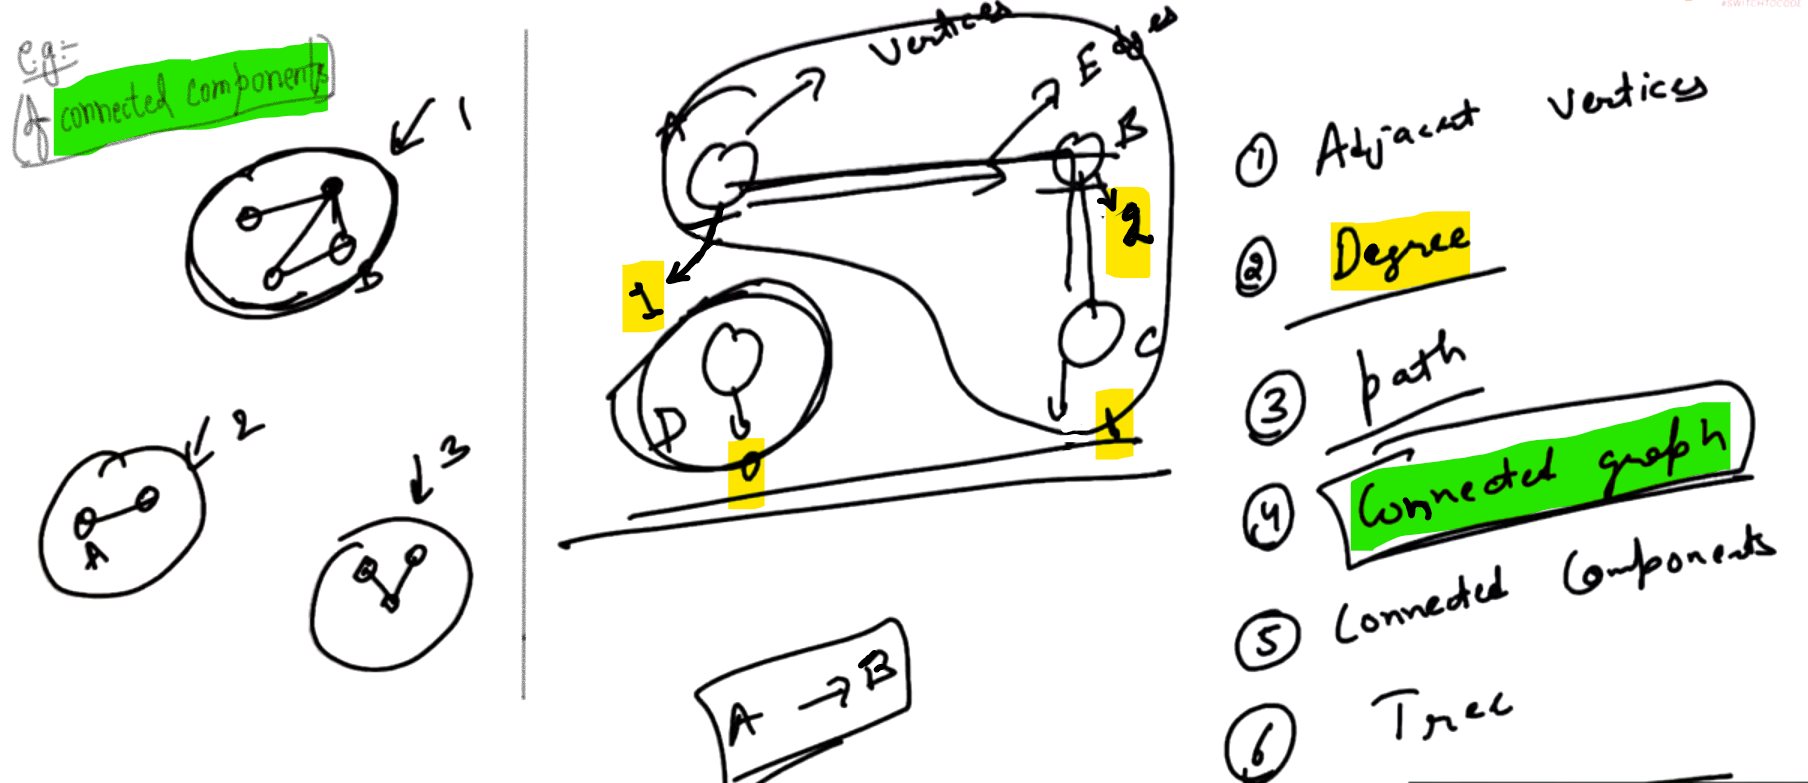 #SWITCHTOCODE
e.g:-
(of connected components)
1
B
2
A
3
Vertices
Edges
A
B
1
2
C
D
0
1
A → B
① Adjacent Vertices
② Degree
③ path
④ Connected graph
⑤ Connected Components
⑥ Tree